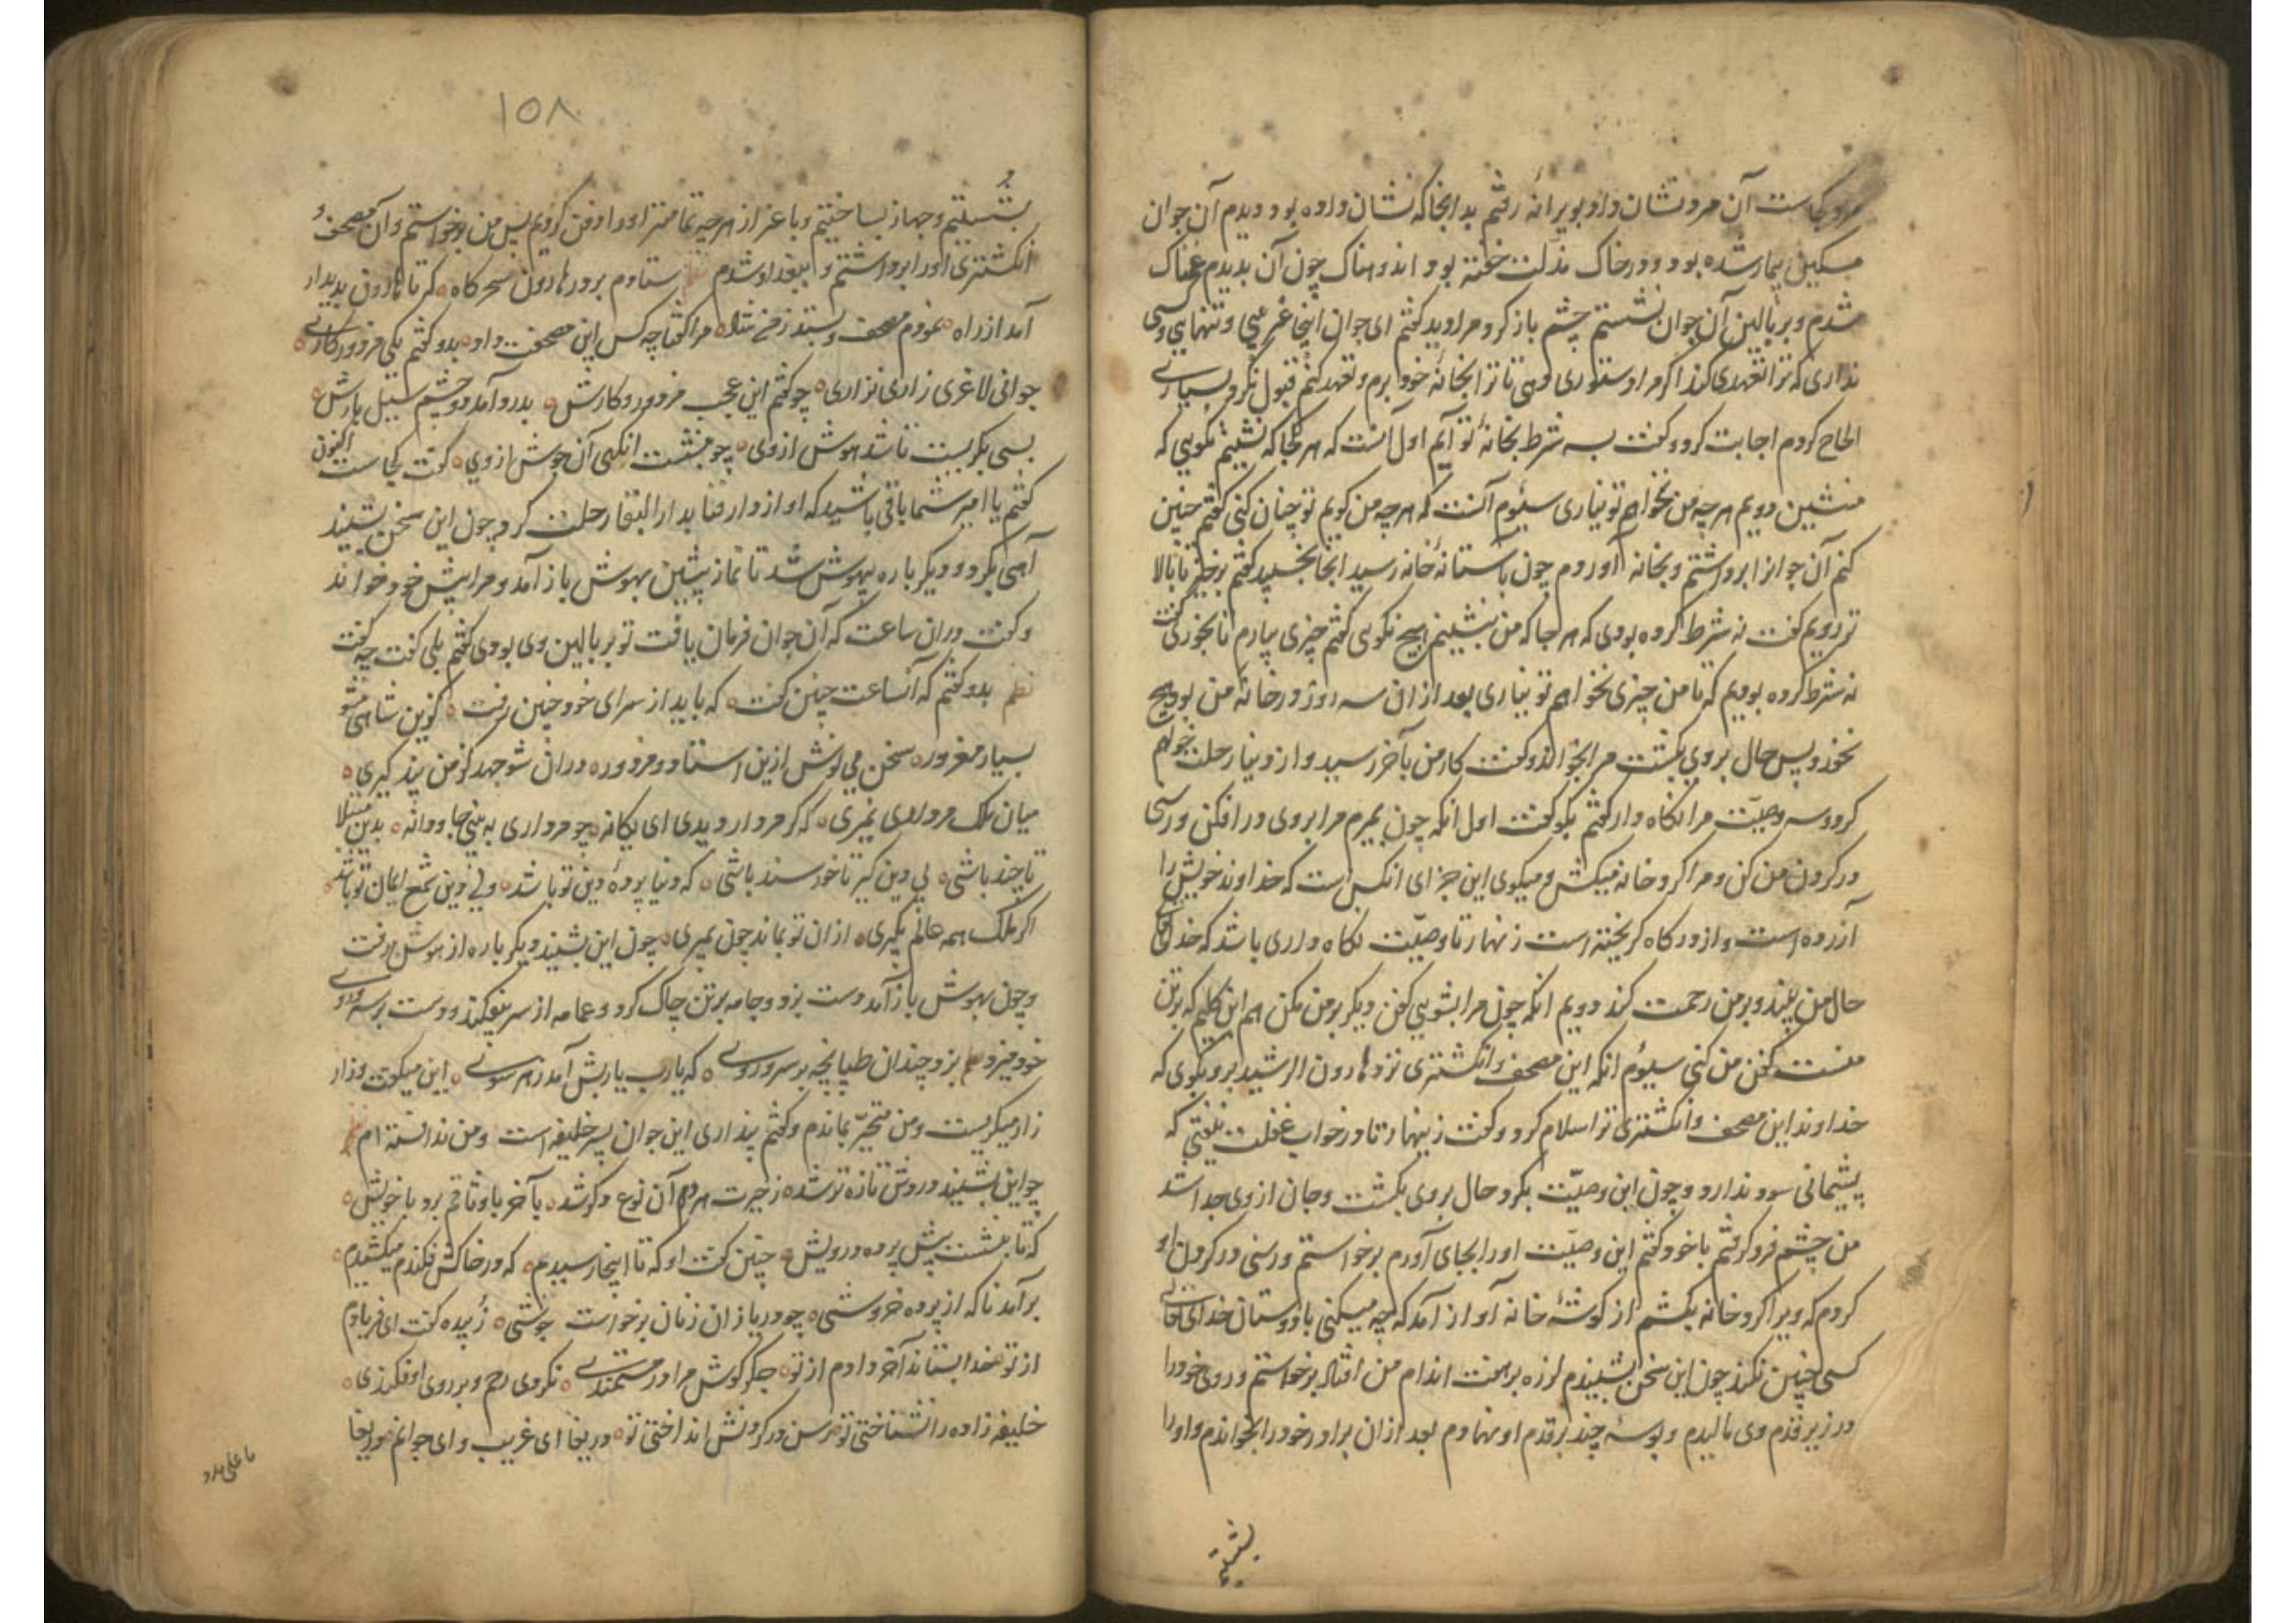 مرد کجاست آن مرد نشان داد بویرانه رفتم بدانجا که نشان داده بود دیدم آن جوان
مسکین بیمار شده بود و در خاک مذلت خفته بود اندوهناک چون آن بدیدم غمناک
شدم و بر بالین آن جوان نشستم چشم باز کرد و مرا دید کفتم ای جوان اینجا غریبی و تنهای و کسی
نداری که ترا تعهدی کند اکر مرا دستوری دهی تا ترا بخانهٔ خود برم و تعهد کنم قبول نکرد بسیاری
الحاح کردم اجابت کرد و کفت بسه شرط بخانهٔ تو آیم اول آنست که هر کجا که نشینم نکویی که
منشین دویم هر چه من نخواهم تو نیاری سیوم آنست که هر چه من کویم تو چنان کنی کفتم چنین
کنم آن جوانرا برداشتم و بخانه آوردم چون باستانهٔ خانه رسید آنجا بخسپید کفتم برخیز تا بالا
تر رویم کفت نه شرط کرده بودی که هر جا که من بنشینم هیچ نکویی کفتم چیزی بیارم تا بخوری کفت
نه شرط کرده بودیم که تا من چیزی نخواهم تو نیاری بعد از ان سه روز در خانهٔ من بود هیچ
نخورد پس حال بر وی بکشت مرا بخواند و کفت کار من بآخر رسید و از دنیا رحلت خواهم
کرد و سه وصیّت مرا نکاه دار کفتم بکو کفت اول انکه چون بمیرم مرا بروی در افکن و رسنی
در کردن من کن و مرا کرد خانه میکش و میکوی این جزای انکس است که خداوند خویش را
آزرده است و از درکاه کریخته است زنهار تا وصیّت نکاه داری باشد که خدای تعالی
حال من بیند و بر من رحمت کند دویم انکه چون مرا بشویی کفن دیکر بر من مکن هم این کلیم که بر تن
منست کفن من کنی سیوم انکه این مصحف و انکشتری نزد هارون الرشید برو بکوی که
خداوند این مصحف و انکشتری ترا سلام کرد و کفت زینهار تا در خواب غفلت نیفتی که
پشیمانی سود ندارد و چون این وصیّت بکرد حال بر وی بکشت و جان از وی جدا شد
من چشم فرو کرفتم با خود کفتم این وصیّت او را بجای آورم برخواستم و رسنی در کردن او
کردم که ویرا کرد خانه بکشم از کوشهٔ خانه آواز آمد که چه میکنی با دوستان خدای تعالی
کسی چنین نکند چون این سخن بشنیدم لرزه بر هفت اندام من افتاد برخواستم و روی خود را
در زیر قدم وی مالیدم و بوسهٔ چند بر قدم او نهادم بعد از ان برادر خود را بخواندم و او را
بشستیم
۱۵۸
بشستیم و جهاز بساختیم و باعزاز هر چه تمامتر او را دفن کردیم پس من برخواستم و آن مصحف و
انکشتری او را برداشتم و ببغداد شدم نظم ستادم بر در هارون سحرکاه که تا هارون پدیدار
آمد از راه نمودم مصحف و بستد ز من شاه مرا کفتا چه کس این مصحفت داد بدو کفتم یکی مزدورکاری
جوانی لاغری زاری نزاری چو کفتم این عجب مزدور و کارش بدرد آمد دو چشم سیل بارش
بسی بکریست تا شد هوش از وی چو بنشست انکهی آن جوش از وی کفت کجاست اکنون
کفتم یا امیر شما باقی باشید که او از دار فنا بدار البقا رحلت کرد چون این سخن بشنید
آهی بکرد و دیکر باره بیهوش شد تا نماز پیشین بهوش باز آمد و مرا پیش خود خواند
و کفت دران ساعت که آن جوان فرمان یافت تو بر بالین وی بودی کفتم بلی کفت چه کفت
نظم بدو کفتم که آنساعت چنین کفت که باید از سرای خود چنین رفت کزین شاهی مشو
بسیار مغرور سخن می نوش ازین استاد و مزدور دران شو جهد کز من پند کیری
میان ملک مرداری نمیری که کر مردار دیدی ای یکانه چو مرداری به بینی جاودانه بدین مبتلا
تا چند باشی پی دین کیر تا خورسند باشی که دنیا پردهٔ دین تو باشد ولی دین شمع ایمان تو باشد
اکر ملک همه عالم بکیری از ان تو بماند چون بمیری چون این بشنید دیکر باره از هوش برفت
و چون بهوش باز آمد دست بزد و جامه بر تن چاک کرد و عمامه از سر بیفکند و دست بر سر و روی
خود میزد نظم بزد چندان طپانچه بر سر و روی که یارب یاربش آمد ز هر سوی این میکفت و زار
زار میکریست و من متحیّر بماندم و کفتم پنداری این جوان پسر خلیفه است و من ندانسته ام نظم
چو این بشنید دردش تازه تر شد ز حیرت هر دم آن نوع دکر شد بآخر با وثاقم برد با خویش
که تا بنشست پیش پرده درویش چنین کفت او که تا اینجا رسیدم که در خاکش فکندم میکشیدم
برآمد ناکه از پرده خروشی چو دریا زان زنان برخواست جوشی زبیده کفت ای فریادم
از تو خدا بستاند آخر دادم از تو جکرکوش مرا در مستمندی نکردی رحم و بر روی اوفکندی
خلیفه زاده را نشناختی تو رسن در کردنش انداختی تو دریغا ای غریب و ای جوانم دریغا
یا علی مدد